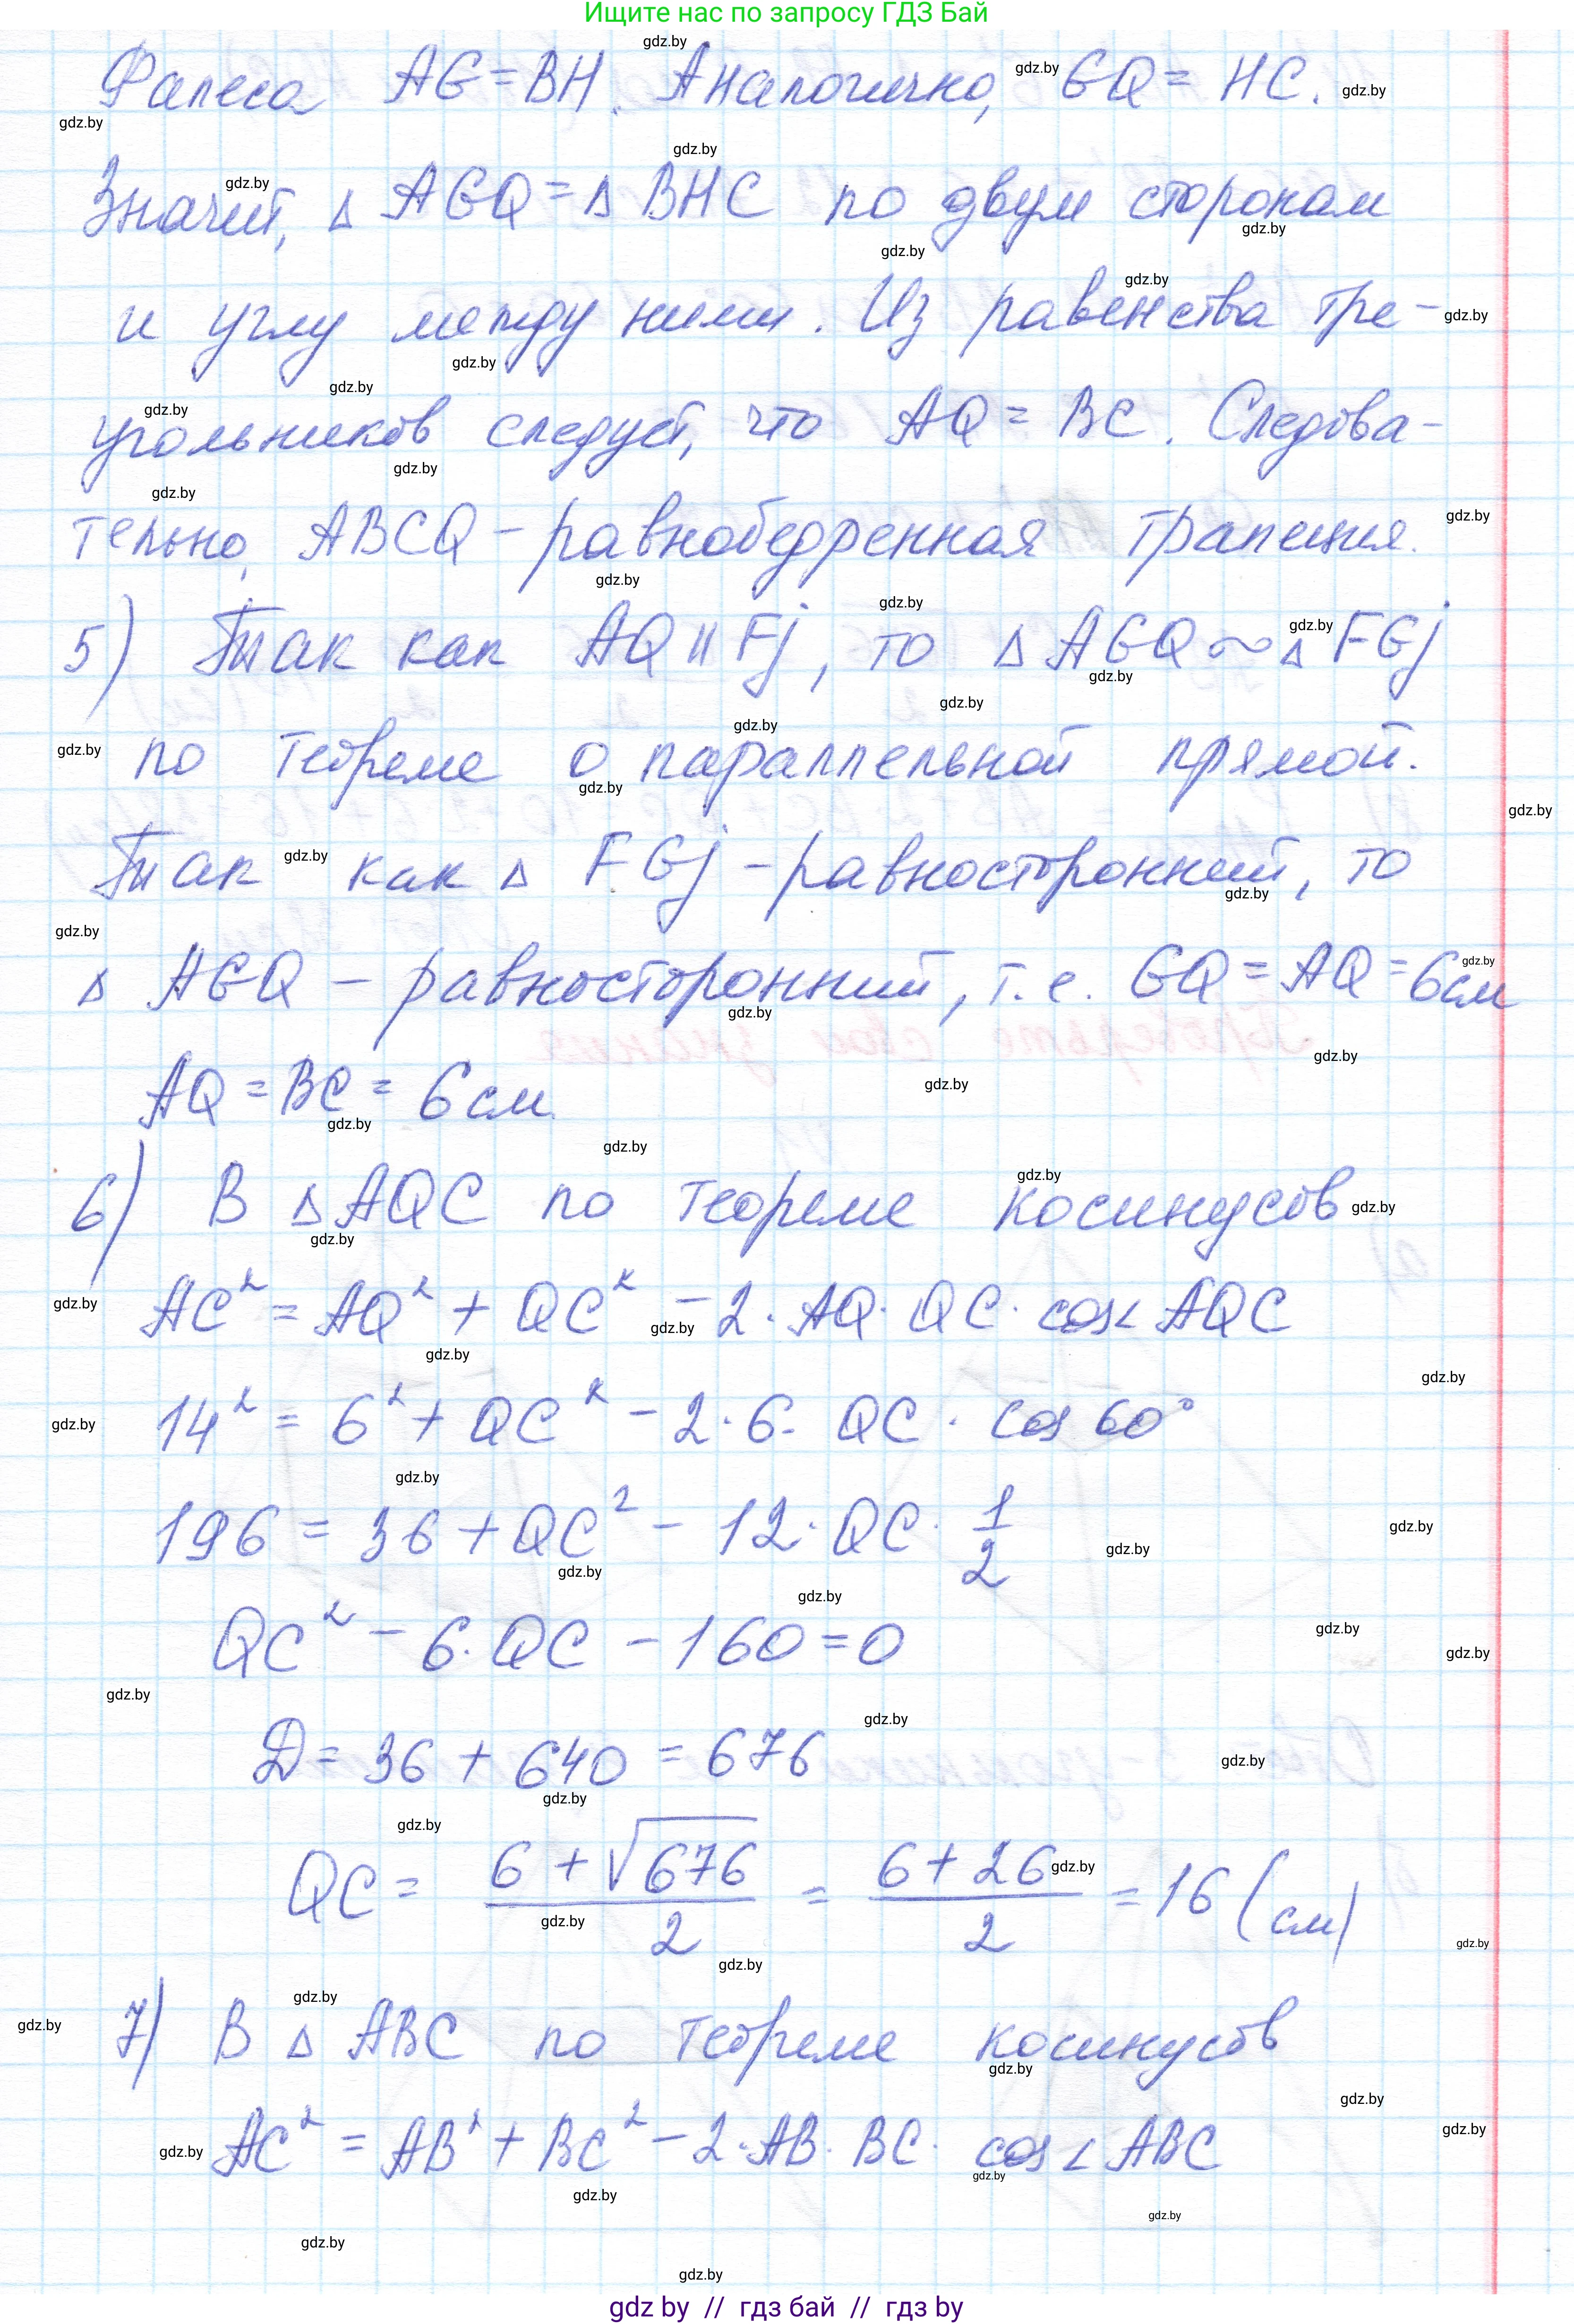 Ищите нас по запросу ГДЗ Бай
Фалеса AG = BH. Аналогично, GQ = HC.
Значит, △ AGQ = △ BHC по двум сторонам
и углу между ними. Из равенства тре-
угольников следует, что AQ = BC. Следова-
тельно, ABCQ - равнобедренная трапеция.
5) Так как AQ || Fj, то △ AGQ ~ △ FGj
по теореме о параллельной прямой.
Так как △ FGj - равносторонний, то
△ AGQ - равносторонний, т.е. GQ = AQ = 6см
AQ = BC = 6 см
6) В △ AQC по теореме косинусов
AC² = AQ² + QC² - 2 · AQ · QC · cos∠ AQC
14² = 6² + QC² - 2 · 6 · QC · cos 60°
196 = 36 + QC² - 12 · QC · 1/2
QC² - 6 · QC - 160 = 0
D = 36 + 640 = 676
QC = (6 + √676)/2 = (6 + 26)/2 = 16 (см)
7) В △ ABC по теореме косинусов
AC² = AB² + BC² - 2 · AB · BC · cos∠ ABC
gdz by // гдз бай // гдз by